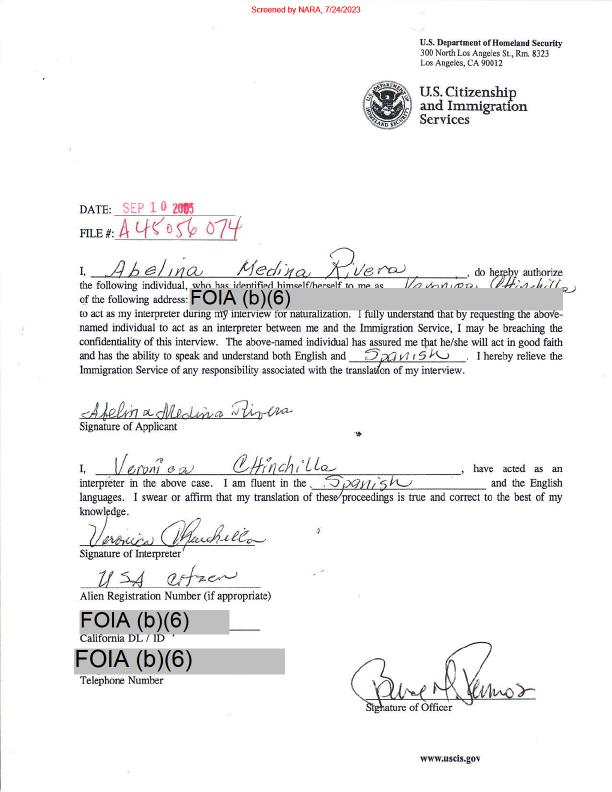 Screened by NARA, 7/24/2023
U.S. Department of Homeland Security
300 North Los Angeles St., Rm. 8323
Los Angeles, CA 90012
U.S. Citizenship
and Immigration
Services
DATE: SEP 10 2005
FILE #: A45056074
I, Abelina Medina Rivera, do hereby authorize
the following individual, who has identified himself/herself to me as Veronica Chinchilla
of the following address: FOIA (b)(6)
to act as my interpreter during my interview for naturalization. I fully understand that by requesting the above-
named individual to act as an interpreter between me and the Immigration Service, I may be breaching the
confidentiality of this interview. The above-named individual has assured me that he/she will act in good faith
and has the ability to speak and understand both English and Spanish. I hereby relieve the
Immigration Service of any responsibility associated with the translation of my interview.
Abelina Medina Rivera
Signature of Applicant
I, Veronica Chinchilla, have acted as an
interpreter in the above case. I am fluent in the Spanish and the English
languages. I swear or affirm that my translation of these proceedings is true and correct to the best of my
knowledge.
Veronica Chinchilla
Signature of Interpreter
USA citzen
Alien Registration Number (if appropriate)
FOIA (b)(6)
California DL / ID
FOIA (b)(6)
Telephone Number
Signature of Officer
www.uscis.gov